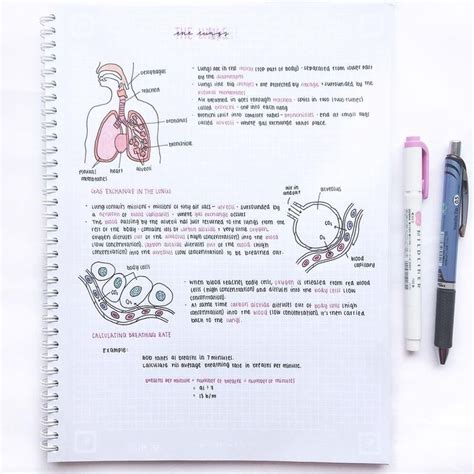 THE LUNGS
the lungs
oesophagus
trachea
bronchus
bronchiole
pleural membranes
heart
alveoli
• Lungs are in the thorax (top part of body) - separated from lower part
by the diaphragm
• Lungs like big sponges + are protected by ribcage + surrounded by the
pleural membranes
• Air breathed in goes through trachea - splits in two (two tubes)
called bronchi - one into each lung
• Bronchi split into smaller tubes = bronchioles - end at small bags
called alveoli - where gas exchange takes place.
GAS EXCHANGE IN THE LUNGS
• Lungs contain millions + millions of tiny air sacs - alveoli - surrounded by
a network of blood capillaries - where gas exchange occurs
• The blood passing by the alveoli has just returned to the lungs from the
rest of the body - contains lots of carbon dioxide + very little oxygen.
Oxygen diffuses out of the alveolus (high concentration) into the blood
(low concentration). Carbon dioxide diffuses out of the blood (high
concentration) into the alveolus (low concentration) to be breathed out.
air in
and out
alveolus
O₂
CO₂
blood
capillary
body cells
O₂
CO₂
• When blood reaches body cells, oxygen is released from red blood
cells (high concentration) and diffuses into the body cells (low
concentration).
• At same time carbon dioxide diffuses out of body cells (high
concentration) into the blood (low concentration). It's then carried
back to the lungs.
CALCULATING BREATHING RATE
Example:
Bob takes 91 breaths in 7 minutes.
Calculate his average breathing rate in breaths per minute.
Breaths per minute = number of breaths ÷ number of minutes
= 91 ÷ 7
= 13 b/m
MILDLINER